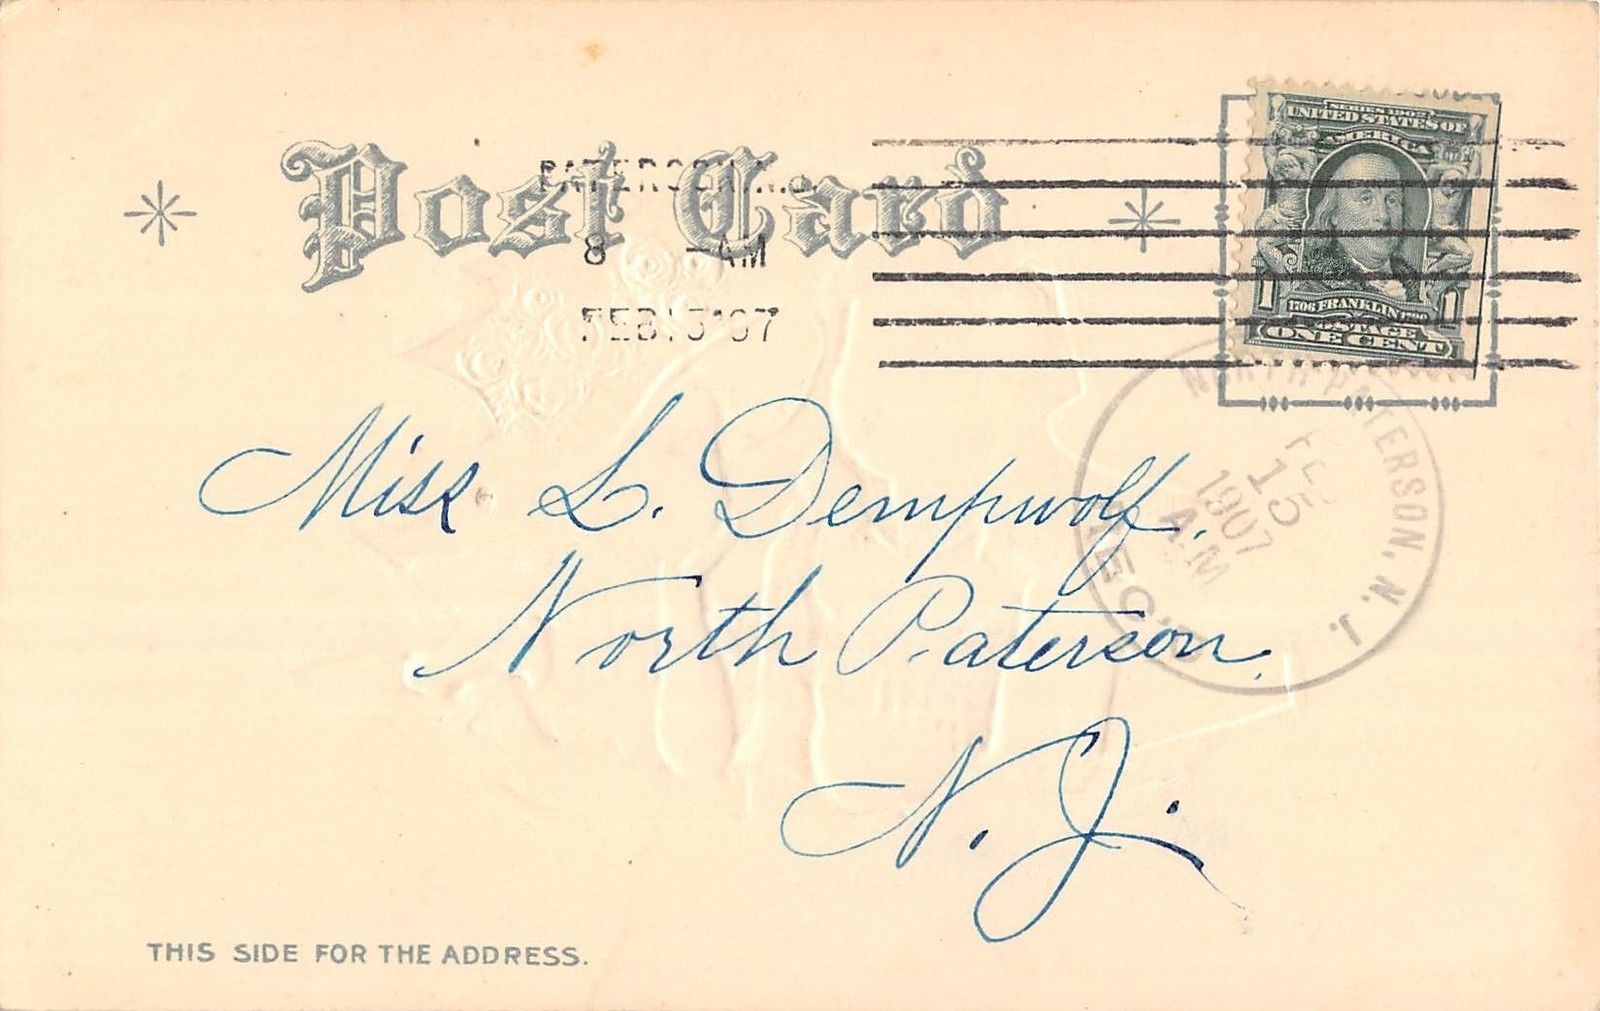 Post Card
PATERSON, N.J.
8 - AM
FEB 13 '07
SERIES 1902
UNITED STATES OF
AMERICA
1706 FRANKLIN 1790
1 1
POSTAGE
ONE CENT
NORTH PATERSON, N. J.
FEB
15
1907
A.M
REC'D
Miss L. Dempwolf,
North Paterson,
N. J.
THIS SIDE FOR THE ADDRESS.